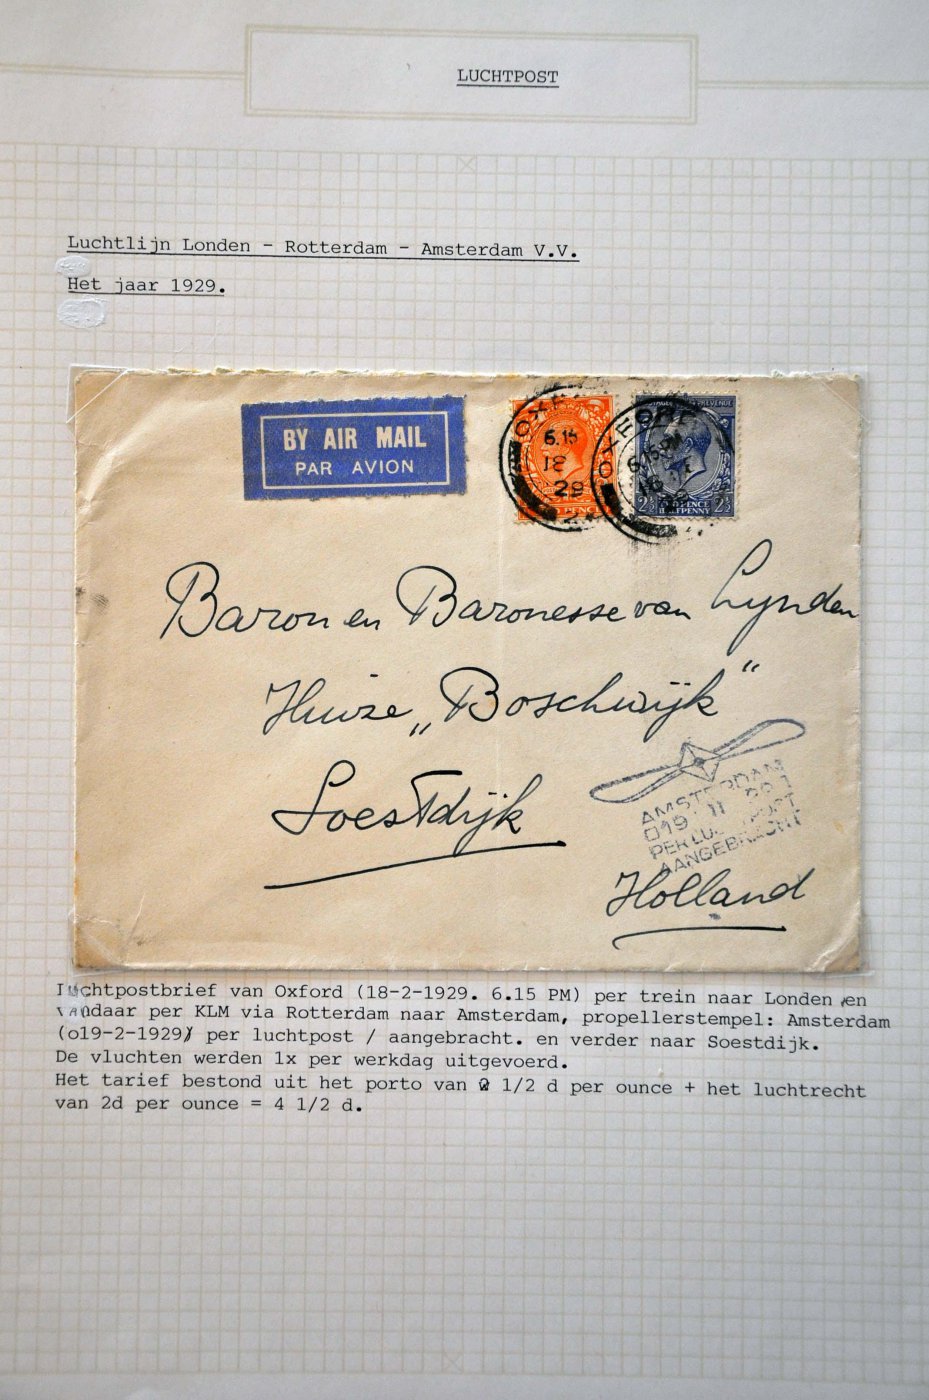 LUCHTPOST
Luchtlijn Londen - Rotterdam - Amsterdam V.V.
Het jaar 1929.
BY AIR MAIL
PAR AVION
OXFORD
6.15
18
29
2
OXFORD
6.15PM
18
29
REVENUE
2½ 2½
HALFPENNY
Baron en Baronesse van Lynden
Huize „Boschwijk"
Soestdijk
AMSTERDAM
019 II 29 1
PER LUCHTPOST
AANGEBRACHT
Holland
Luchtpostbrief van Oxford (18-2-1929. 6.15 PM) per trein naar Londen en
vandaar per KLM via Rotterdam naar Amsterdam, propellerstempel: Amsterdam
(o19-2-1929) per luchtpost / aangebracht. en verder naar Soestdijk.
De vluchten werden 1x per werkdag uitgevoerd.
Het tarief bestond uit het porto van 2 1/2 d per ounce + het luchtrecht
van 2d per ounce = 4 1/2 d.